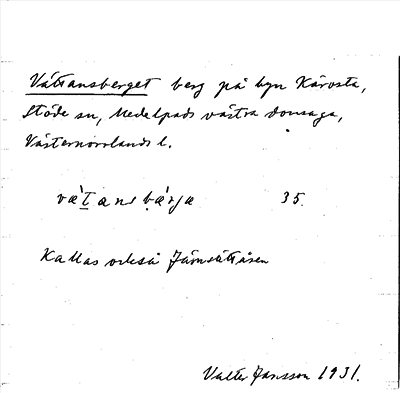 Vättansberget berg på byn Kärvsta,
Stöde sn, Medelpads västra domsaga,
Västernorrlands l.
vät̲ans bärja 35.
Kallas också Järnsättåsen
Valter Jansson 1931.